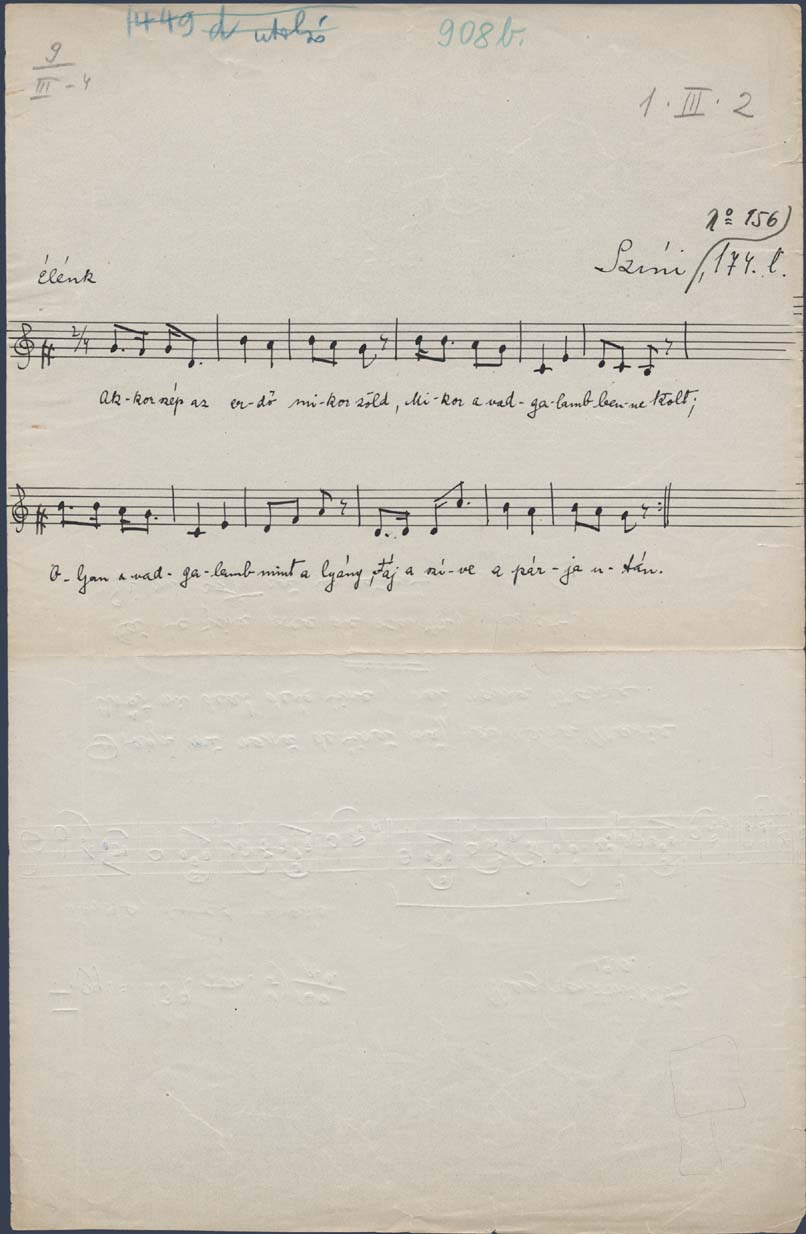 1449 d utolsó
908b.
9
III - 4
1. III. 2
No 156)
Színi, 174. l.
élénk
2/4
Ak-kor szép az er-dő mi-kor zöld, Mi-kor a vad-ga-lamb ben-ne költ;
O-lyan a vad-ga-lamb mint a lyány, Fáj a szí-ve a pár-ja u-tán.